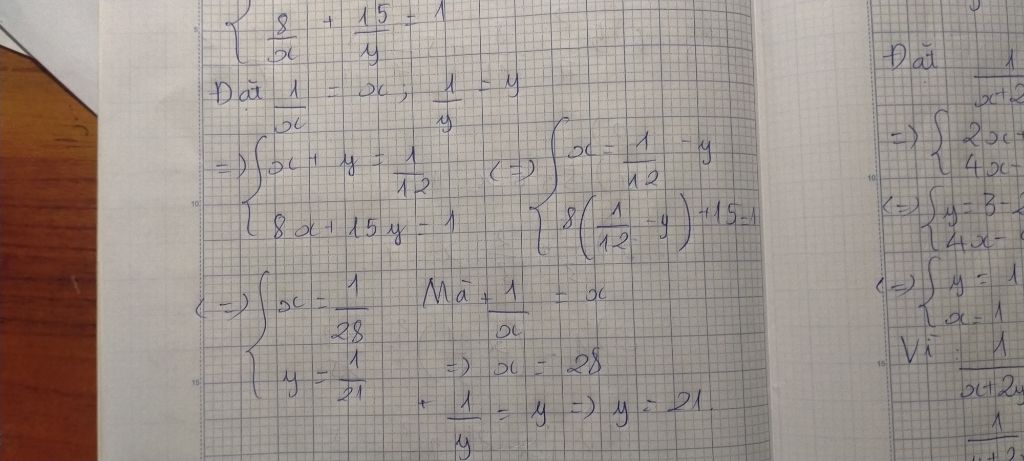 8/x + 15/y = 1
Đặt 1/x = x; 1/y = y
=> { x + y = 1/12 (=> { x = 1/12 - y
8x + 15y = 1 8(1/12 - y) + 15 = 1
(=> { x = 1/28 Mà + 1/x = x
y = 1/21 => x = 28
+ 1/y = y => y = 21.
Đặt 1/x+2
=> { 2x+
4x-
(=> { y = 3 -
4x -
(=> { y = 1
x = 1
Vì 1/x+2y